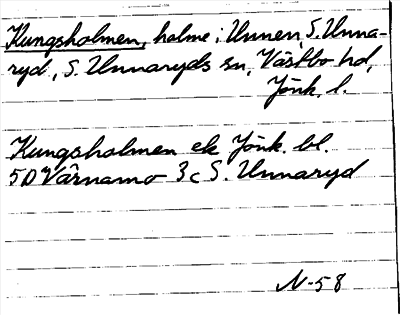 Kungsholmen, holme i Unnen, S. Unna-
ryd, S. Unnaryds sn, Västbo hd,
Jönk. l.
Kungsholmen ek Jönk. bl.
5D Värnamo 3c S. Unnaryd
N-58